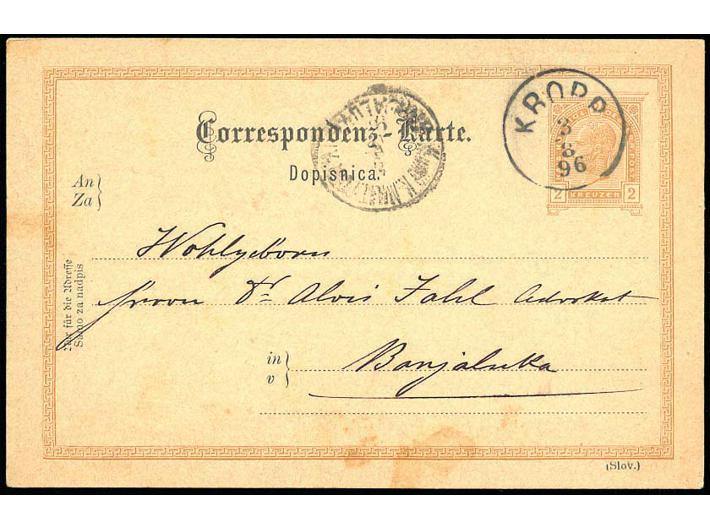 Correspondenz-Karte.
Dopisnica.
KROPP
3
8
96
2 KREUZER 2
An
Za
Wohlgeborn
Herrn Dr Alois Fahl Advokat
in
v
Banjaluka
Nur für die Adresse
Samo za nadpis
(Slov.)